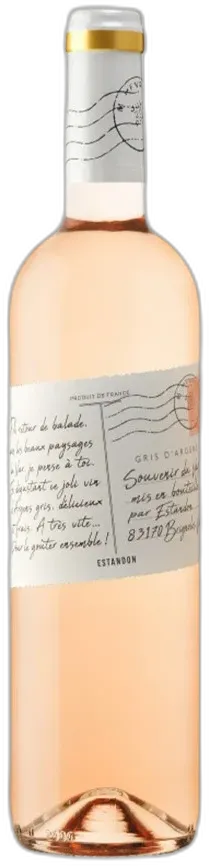 PRODUIT DE FRANCE
retour de balade,
les beaux paysages
je pense à toi.
dégustant ce joli vin
gris, délicieux
frais. A très vite...
le goûter ensemble !
GRIS D'ARGENS
Souvenir du
mis en bouteille
par Estandon
83170 Brignoles
ESTANDON